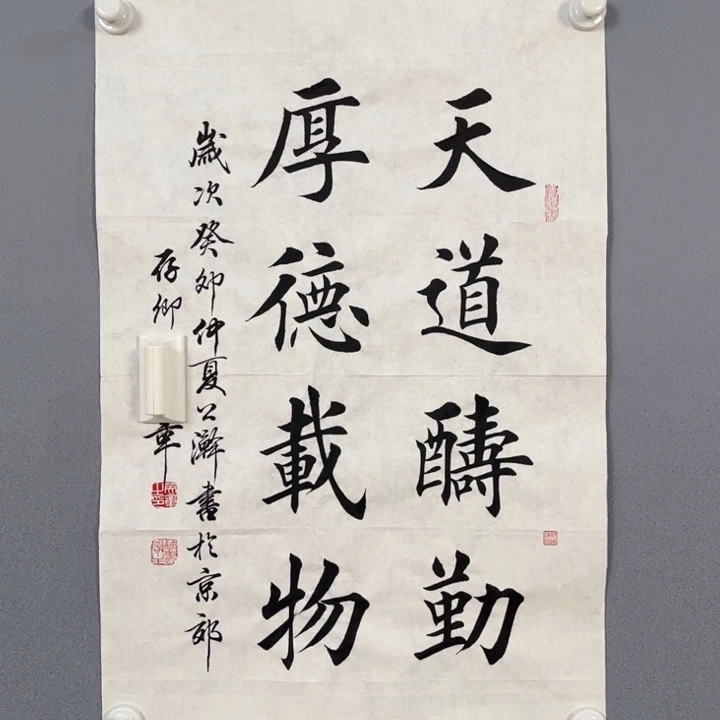 天道醻勤
厚德載物
歲次癸卯仲夏書於京郊
存卿